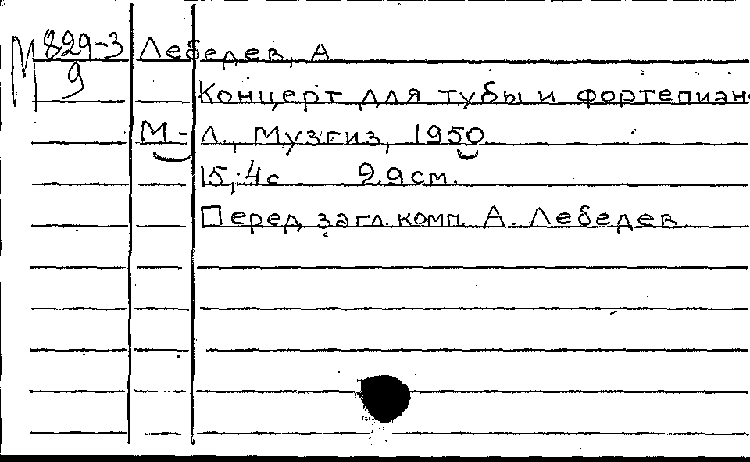 М 829-3
9
Лебедев, А
Концерт для тубы и фортепиан
М-Л., Музгиз, 1950
15; 4с 29см.
Перед загл. комп. А. Лебедев